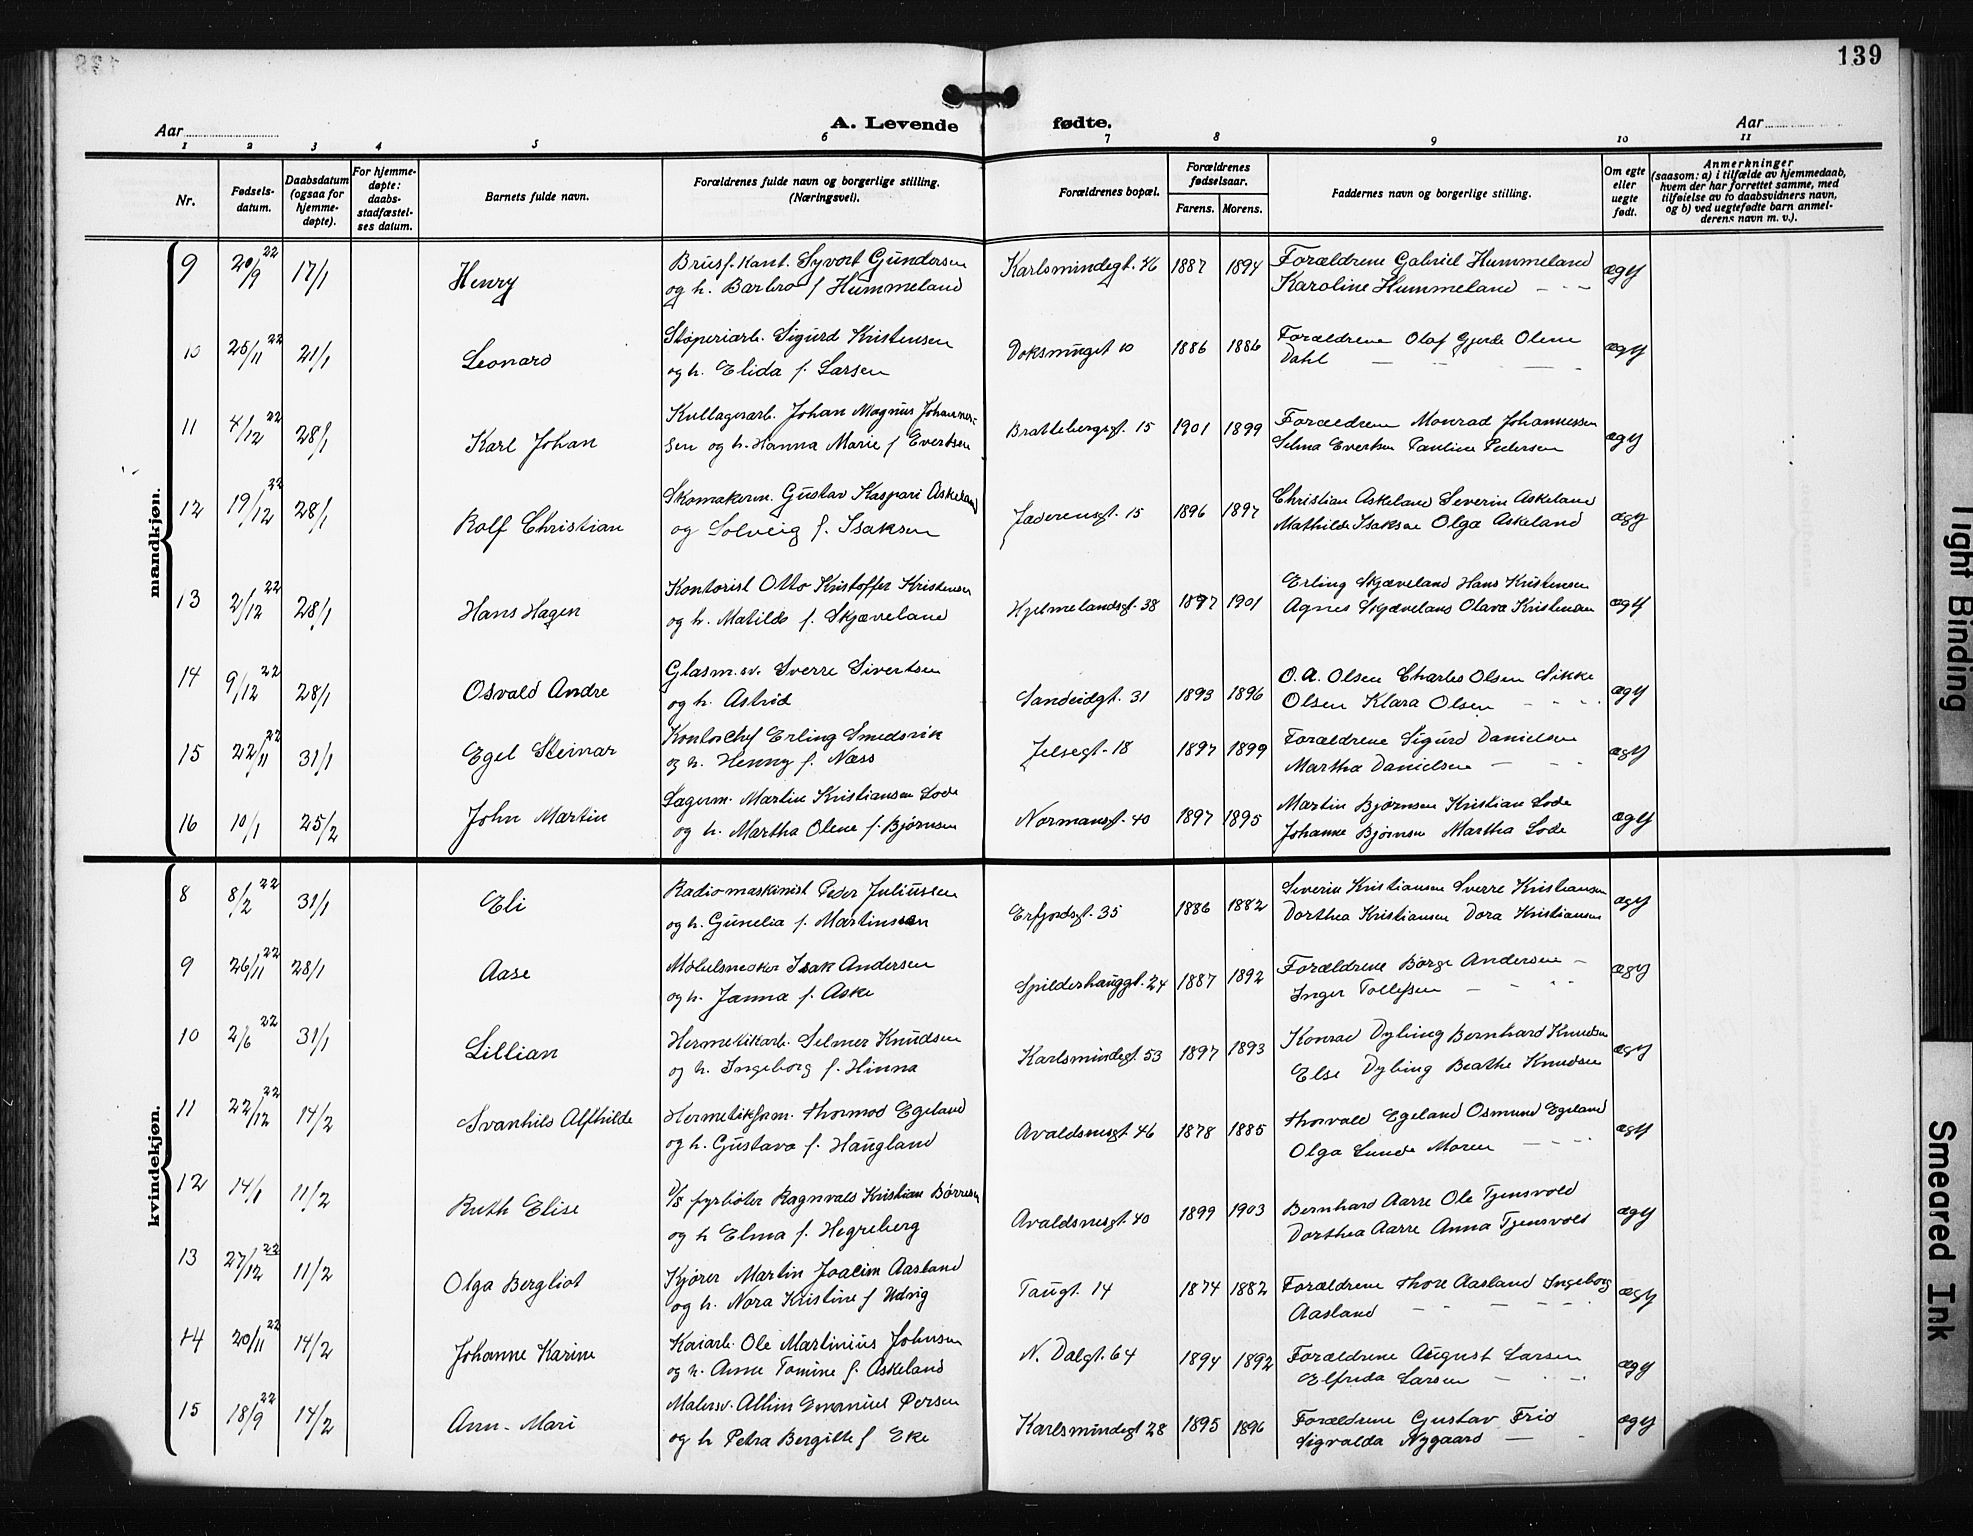 139
Aar
A. Levende fødte.
Aar
1 2 3 4 5 6 7 8 9 10 11
Nr.
Fødsels-
datum.
Daabsdatum
(ogsaa for
hjemme-
døpte).
For hjemme-
døpte:
daabs-
stadfæstel-
ses datum.
Barnets fulde navn.
Forældrenes fulde navn og borgerlige stilling.
(Næringsvei).
Forældrenes bopæl.
Forældrenes
fødselsaar.
Farens. Morens.
Faddernes navn og borgerlige stilling.
Om egte
eller
uegte
født.
Anmerkninger
(saasom: a) i tilfælde av hjemmedaab,
hvem der har forrettet samme, med
tilføielse av to daabsvidners navn,
og b) ved uegtefødte barn anmel-
derens navn m. v.).
mandkjøn.
9 20/9 22 17/1 Henry Brusf. kant. Syvort Gundersen Karlsmindegt. 46 1887 1894 Forældrene Gabriel Hummeland ægt
og h. Barbro f Hummeland Karoline Hummeland
10 25/11 22 21/1 Leonard Støperiarb. Sigurd Kristensen Doksmuget 10 1886 1886 Forældrene Olaf Gjerde Olene ægt
og h. Elida f. Larsen Dahl
11 4/12 22 28/1 Karl Johan Kullagerarb. Johan Magnus Johannes- Brattebergsgt. 15 1901 1899 Forældrene Monrad Johannessen ægt
sen og h. Hanna Marie f Evertsen Selma Evertsen Pauline Pedersen
12 19/12 22 28/1 Rolf Christian Skomakerm. Gustav Kaspari Askeland Jæderensgt. 15 1896 1897 Christian Askeland Severin Askeland ægt
og Solveig f. Isaksen Mathilde Isaksen Olga Askeland
13 2/12 22 28/1 Hans Hagen Kontorist Otto Kristoffer Kristensen Hjelmelandsgt. 38 1897 1901 Erling Skjæveland Hans Kristensen ægt
og h. Matilde f. Skjæveland Agnes Skjæveland Olava Kristensen
14 9/12 22 28/1 Osvald Andre Glasm.sv. Sverre Sivertsen Sandeidgt. 31 1893 1896 O. A. Olsen Charles Olsen Sikke ægt
og h. Astrid Olsen Klara Olsen
15 22/11 22 31/1 Egel Steinar Kontorchef Erling Smedsvik Jelsegt. 18 1897 1899 Forældrene Sigurd Danielsen ægt
og h. Henny f. Næss Martha Danielsen
16 10/1 25/2 John Martin Lagerm. Martin Kristiansen Lode Normansgt. 40 1897 1895 Martin Bjørnsen Kristian Lode ægt
og h. Martha Olene f. Bjørnsen Johanne Bjørnsen Martha Lode
kvindekjøn.
8 8/2 22 31/1 Eli Radiomaskinist Peder Juliussen Erfjordsgt. 35 1886 1882 Severin Kristiansen Sverre Kristiansen ægt
og h. Gunelia f. Martinsen Dorthea Kristiansen Dora Kristiansen
9 26/11 22 28/1 Aase Møbelsnedker Isak Andersen Spilderhauggt. 24 1887 1892 Forældrene Børge Andersen ægt
og h. Janna f. Aske Inger Tollefsen
10 2/6 22 31/1 Lillian Hermetikarb. Selmer Knudsen Karlsmindegt. 53 1897 1893 Konrad Dybing Bernhard Knudsen ægt
og h. Ingeborg f. Hinna Else Dybing Beathe Knudsen
11 22/12 22 14/2 Svanhild Alfhilde Hermetikform. Thormod Egeland Avaldsnesgt. 46 1878 1885 Thorvald Egeland Osmund Egeland ægt
og h. Gustava f. Haugland Olga Lunde Moren
12 14/1 11/2 Ruth Elise D/S fyrbøter Ragnvald Kristian Børresen Avaldsnesgt. 40 1899 1903 Bernhard Aarre Ole Tjensvold ægt
og h Elma f. Hegreberg Dorthea Aarre Anna Tjensvold
13 27/12 22 11/2 Olga Bergliot Kjører Martin Joacim Aasland Taugt. 14 1874 1882 Forældrene Thore Aasland Ingeborg ægt
og h. Nora Kristine f Udvig Aasland
14 20/11 22 14/2 Johanne Karine Kaiarb. Ole Martinius Johnsen N. Dalgt. 64 1894 1892 Forældrene August Larsen ægt
og h. Anne Tomine f. Askeland Elfrida Larsen
15 18/9 22 14/2 Ann-Mari Malersv. Allim Emanuel Persen Karlsmindegt 28 1895 1896 Forældrene Gustav Frid ægt
og h Petra Bergitte f Eke Sigvalda Nygaard
Tight Binding
Smeared Ink